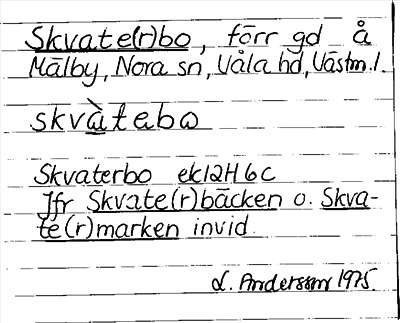 Skvate(r)bo, förr gd å
Mälby, Nora sn, Våla hd, Västm.l.
skvὰtabω
Skvaterbo ek12H6c
Jfr Skvate(r)bäcken o. Skva-
te(r)marken invid.
L. Andersson 1975.